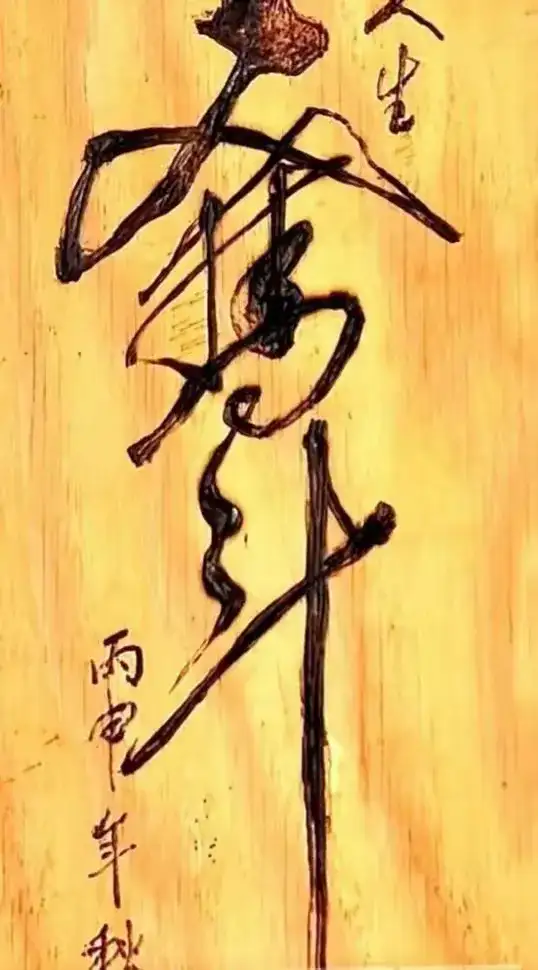 人生
奋斗
丙申年秋